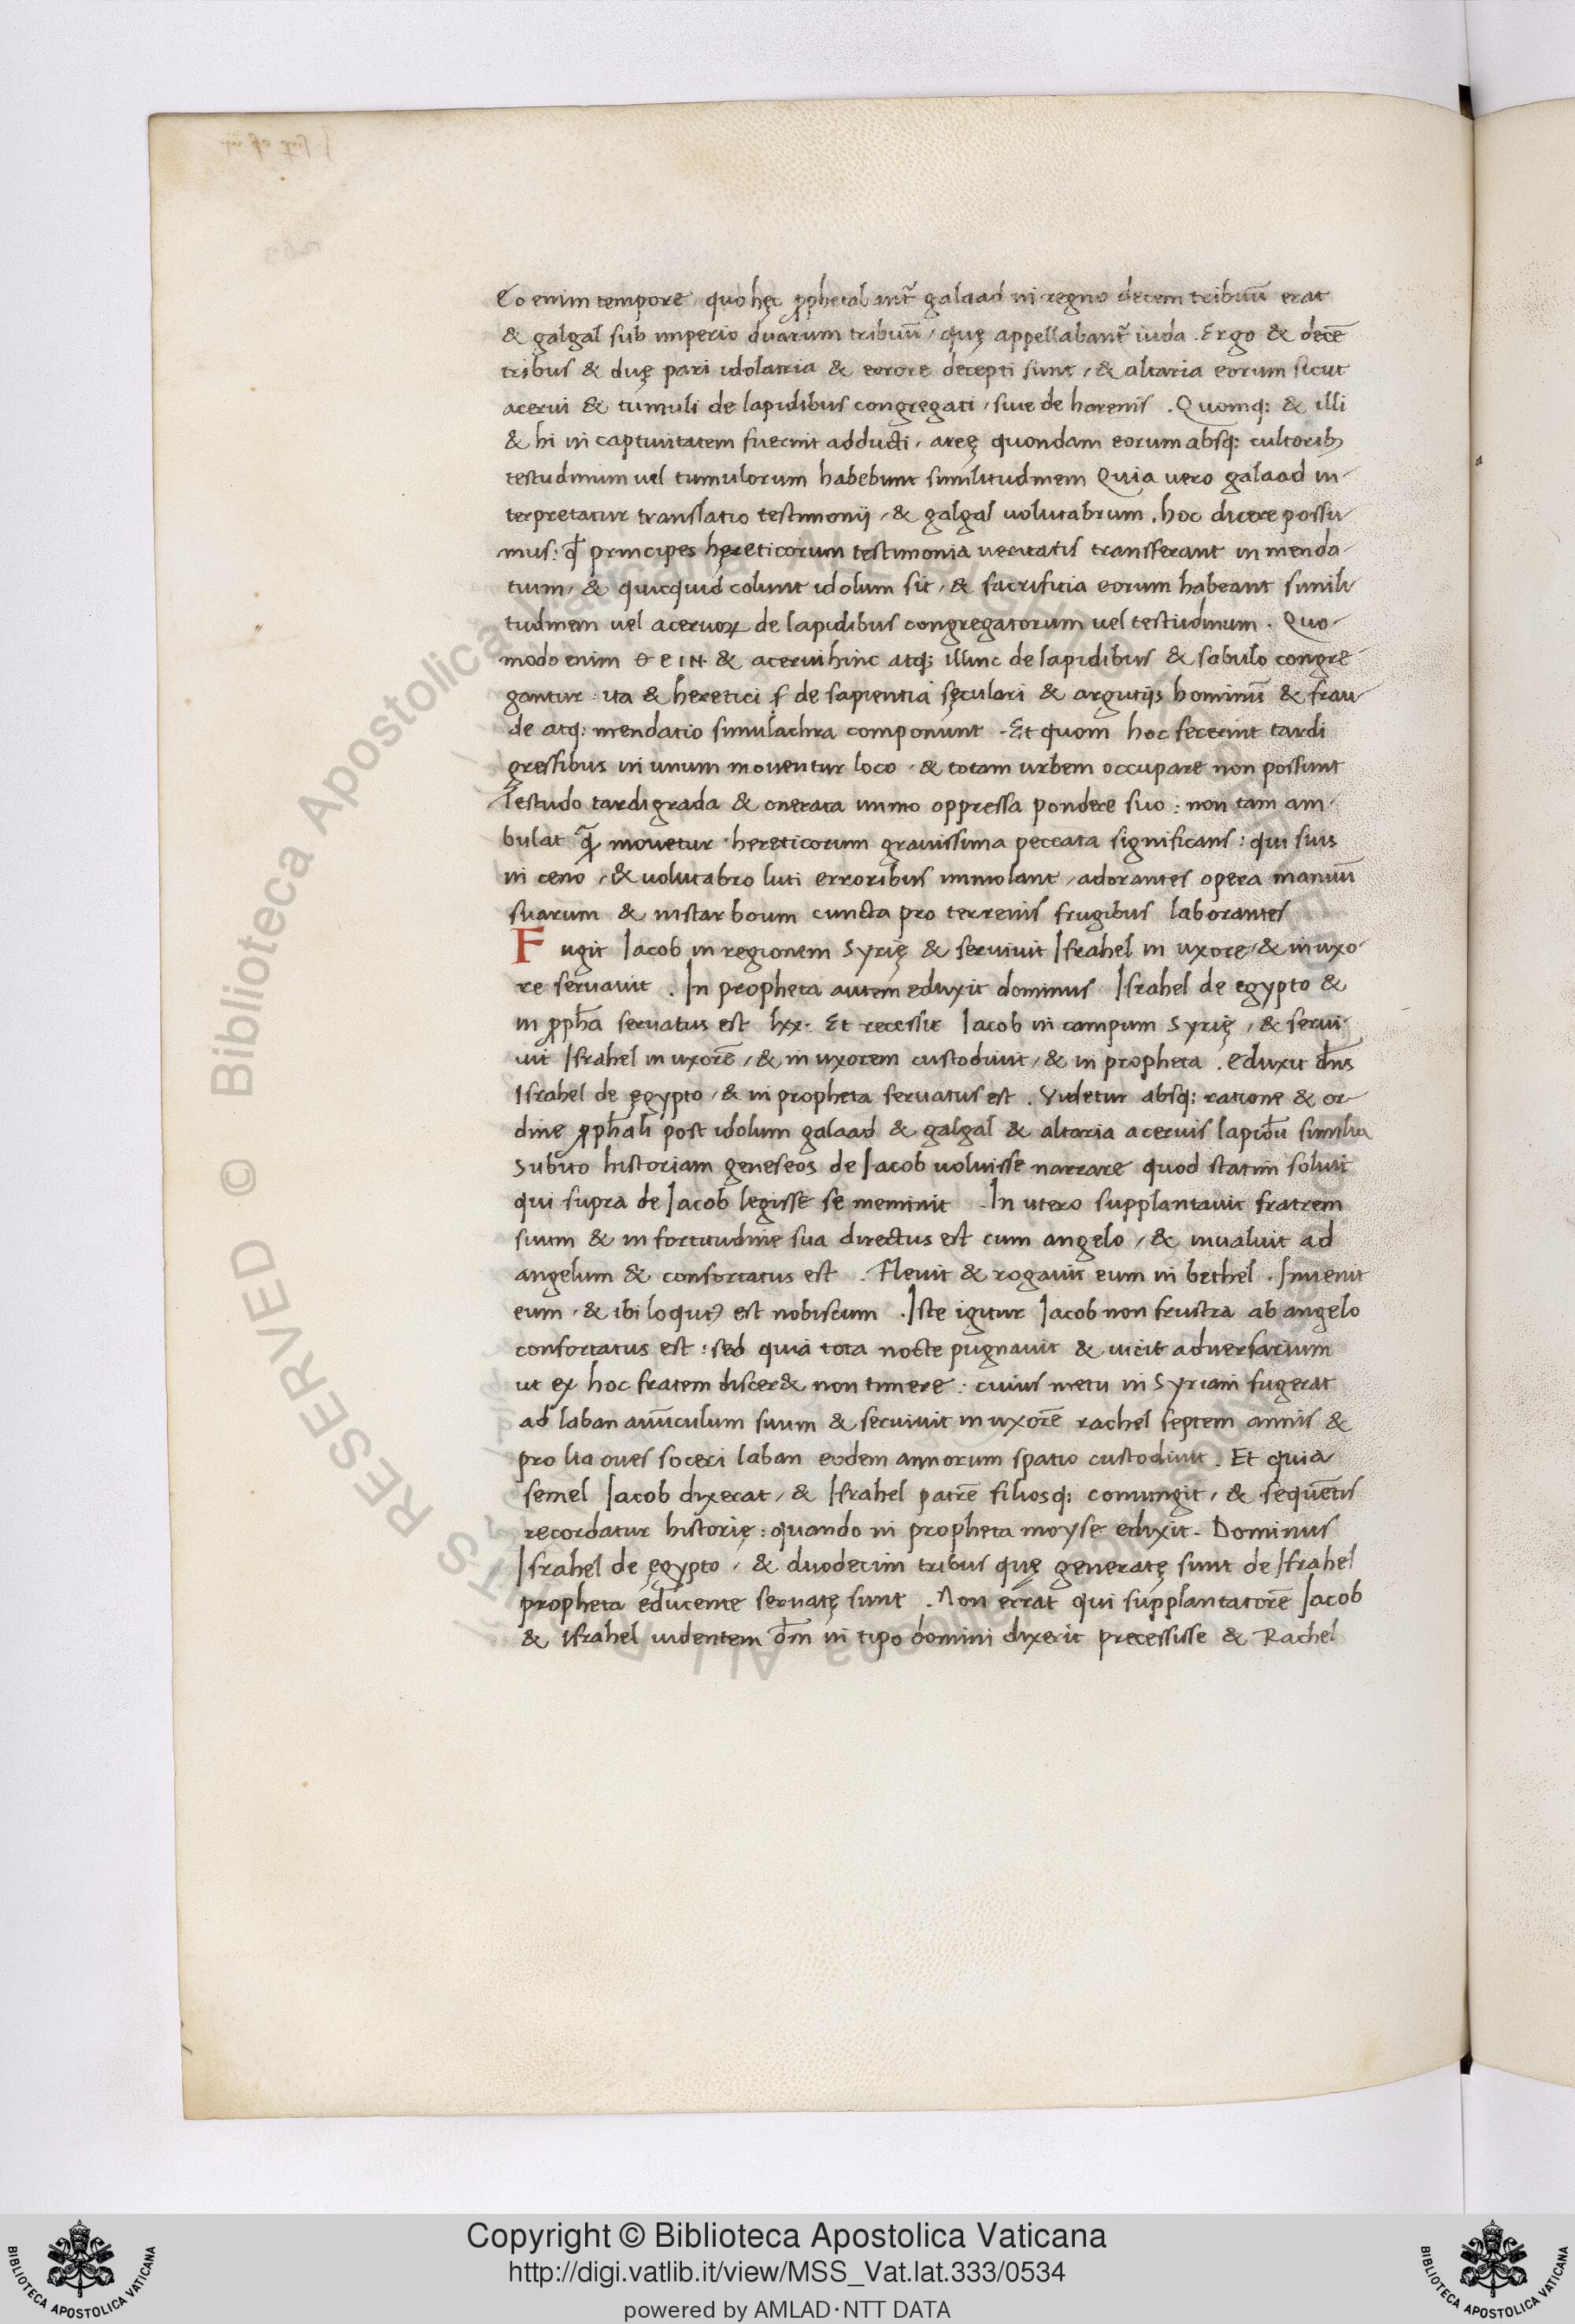 Eo enim tempore quo hęc ꝓphetabant᷑ galaad in regno decem tribuū erat
& galgal sub imperio duarum tribuū, quę appellabant᷑ iuda. Ergo & decē
tribus & duę pari idolatria & eorore decepti sunt, & altaria eorum sicut
acerui & tumuli de lapidibus congregati, siue de harenis. Quomq; & illi
& hi in captiuitatem fuerint adducti, areę quondam eorum absq; cultorib;
testudinum vel tumulorum habebunt similitudinem Quia vero galaad in-
terpretatur translatio testimonij, & galgal volutabrum. hoc dicere possu-
mus: qđ principes hęreticorum testimonia veritatis transferant in menda-
tium, & quicquid colunt idolum sit, & sacrificia eorum habeant simili-
tudinem vel aceruoꝝ de lapidibus congregatorum vel testudinum. Quo-
modo enim & acerui hinc atq; illinc de lapidibus & sabulo congre-
gantur ita & heretici de sapientia sęculari & argutijs hominū & frau-
de atq; mendatio simulachra componunt. Et quom hoc fecerint tardi
gressibus in unum mouentur loco, & totam urbem occupare non possunt
Testudo tardigrada & onerata immo oppressa pondere suo: non tam am-
bulat q̃ mouetur. hereticorum grauissima peccata significans: qui suis
in ceno, & volutabro luti erroribus immolant, adorantes opera manuū
suarum & instar boum cuncta pro terrenis frugibus laborantes
Fugit Iacob in regionem Syrię & seruiuit Israhel in uxore, & in uxo-
re seruauit. In propheta autem eduxit dominus Israhel de egypto &
in ꝓpha seruatus est lxx. Et recessit Iacob in campum Syrię, & serui-
uit Israhel in uxorē, & in uxorem custodiuit, & in propheta. eduxit dn̄s
Israhel de ęgypto, & in propheta seruatus est. Videtur absq; ratione & or-
dine ꝓphali post idolum galaad & galgal & altaria aceruis lapidū similia
Subito historiam geneseos de Iacob uoluisse narrare quod statim soluit
qui supra de Iacob legisse se meminit. In utero supplantauit fratrem
suum & in fortitudine sua directus est cum angelo, & inualuit ad
angelum & confortatus est. Fleuit & rogauit eum in bethel. Inuenit
eum, & ibi locutꝰ est nobiscum. Iste igitur Iacob non frustra ab angelo
confortatus est: sed quia tota nocte pugnauit & uicit aduersarium
ut ex hoc fratem discer& non timere: cuius metu in Syriam fugerat
ad laban auūculum suum & seruiuit in uxorē rachel septem annis &
pro lia oues soceri laban eodem annorum spatio custodiuit. Et quia
semel Iacob dixerat, & Israhel patrē filiosq; coniungit, & sequētis
recordatur historię: quando in propheta moyse eduxit. Dominus
Israhel de ęgypto, & duodecim tribus quę generatę sunt de Israhel
propheta educente seruatę sunt. Non errat qui supplantatorē Iacob
& Israhel uidentem dm̄ in tipo domini dixerit precessisse & Rachel
Copyright © Biblioteca Apostolica Vaticana
http://digi.vatlib.it/view/MSS_Vat.lat.333/0534
powered by AMLAD·NTT DATA